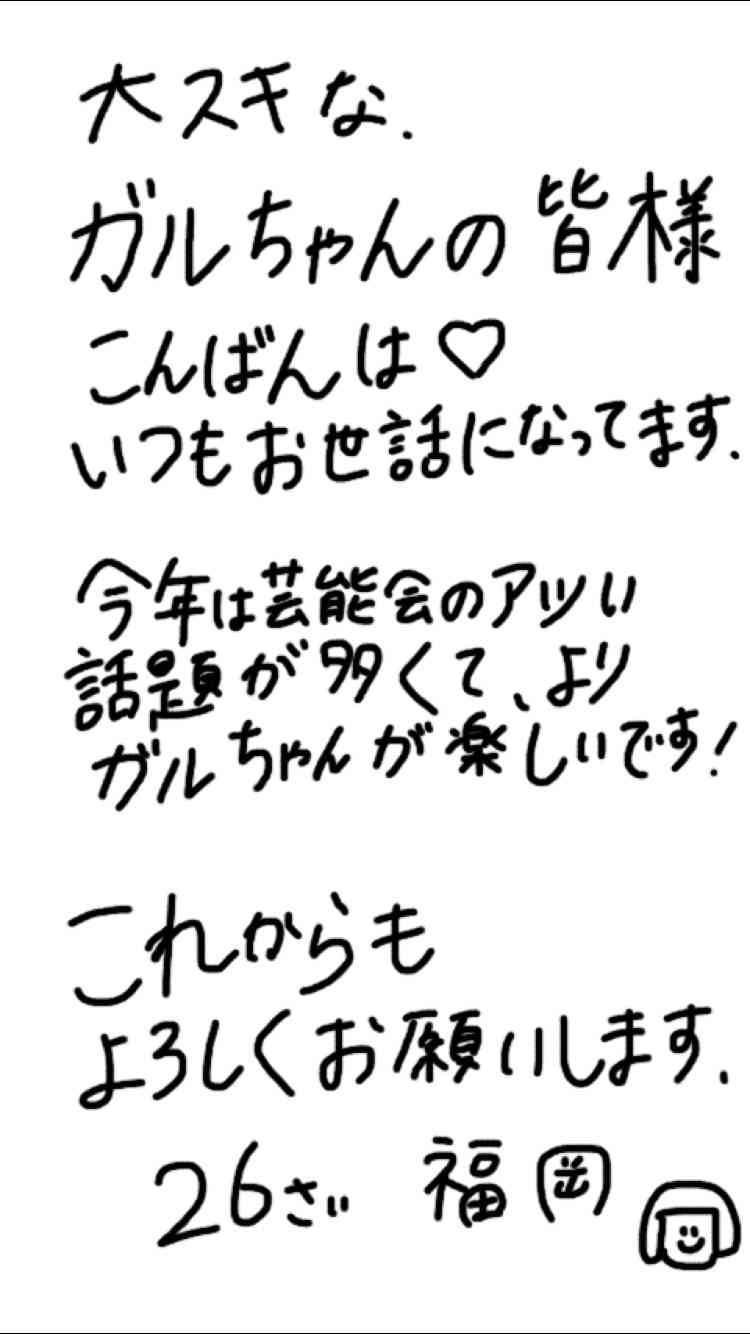 大スキな.
ガルちゃんの皆様
こんばんは♡
いつもお世話になってます.
今年は芸能会のアツい
話題が多くて、より
ガルちゃんが楽しいです!
これからも
よろしくお願いします.
26さい 福岡